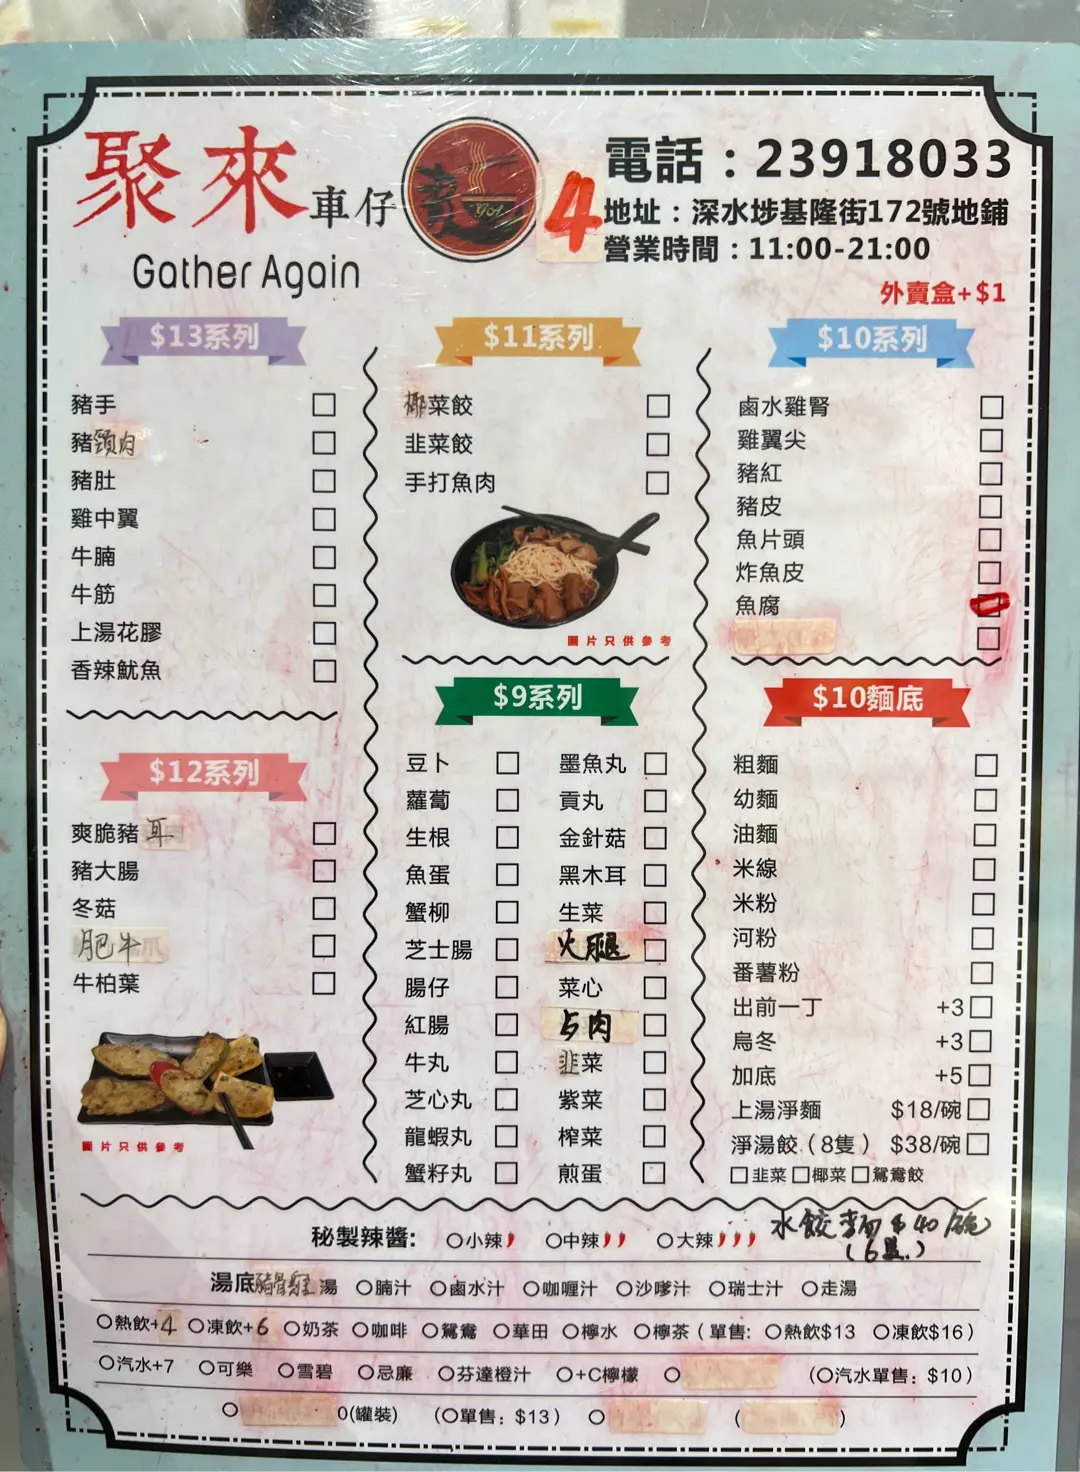 聚來車仔
Gather Again
4
電話：23918033
地址：深水埗基隆街172號地鋪
營業時間：11:00-21:00
外賣盒+$1
$13系列
豬手
豬頸肉
豬肚
雞中翼
牛腩
牛筋
上湯花膠
香辣魷魚
$12系列
爽脆豬耳
豬大腸
冬菇
肥牛
牛柏葉
圖片只供參考
$11系列
椰菜餃
韭菜餃
手打魚肉
圖片只供參考
$9系列
豆卜
蘿蔔
生根
魚蛋
蟹柳
芝士腸
腸仔
紅腸
牛丸
芝心丸
龍蝦丸
蟹籽丸
墨魚丸
貢丸
金針菇
黑木耳
生菜
火腿
菜心
韭菜
紫菜
榨菜
煎蛋
$10系列
鹵水雞腎
雞翼尖
豬紅
豬皮
魚片頭
炸魚皮
魚腐
$10麵底
粗麵
幼麵
油麵
米線
米粉
河粉
番薯粉
出前一丁 +3
烏冬 +3
加底 +5
上湯淨麵 $18/碗
淨湯餃（8隻） $38/碗
韭菜 椰菜 鴛鴦餃
水餃麵$40/碗
秘製辣醬: 小辣 中辣 大辣
湯底 豬骨湯 腩汁 鹵水汁 咖喱汁 沙嗲汁 瑞士汁 走湯
熱飲+4 凍飲+6 奶茶 咖啡 鴛鴦 華田 檸水 檸茶（單售: 熱飲$13 凍飲$16）
汽水+7 可樂 雪碧 忌廉 芬達橙汁 +C檸檬 （汽水單售：$10）
0(罐裝) （單售：$13）